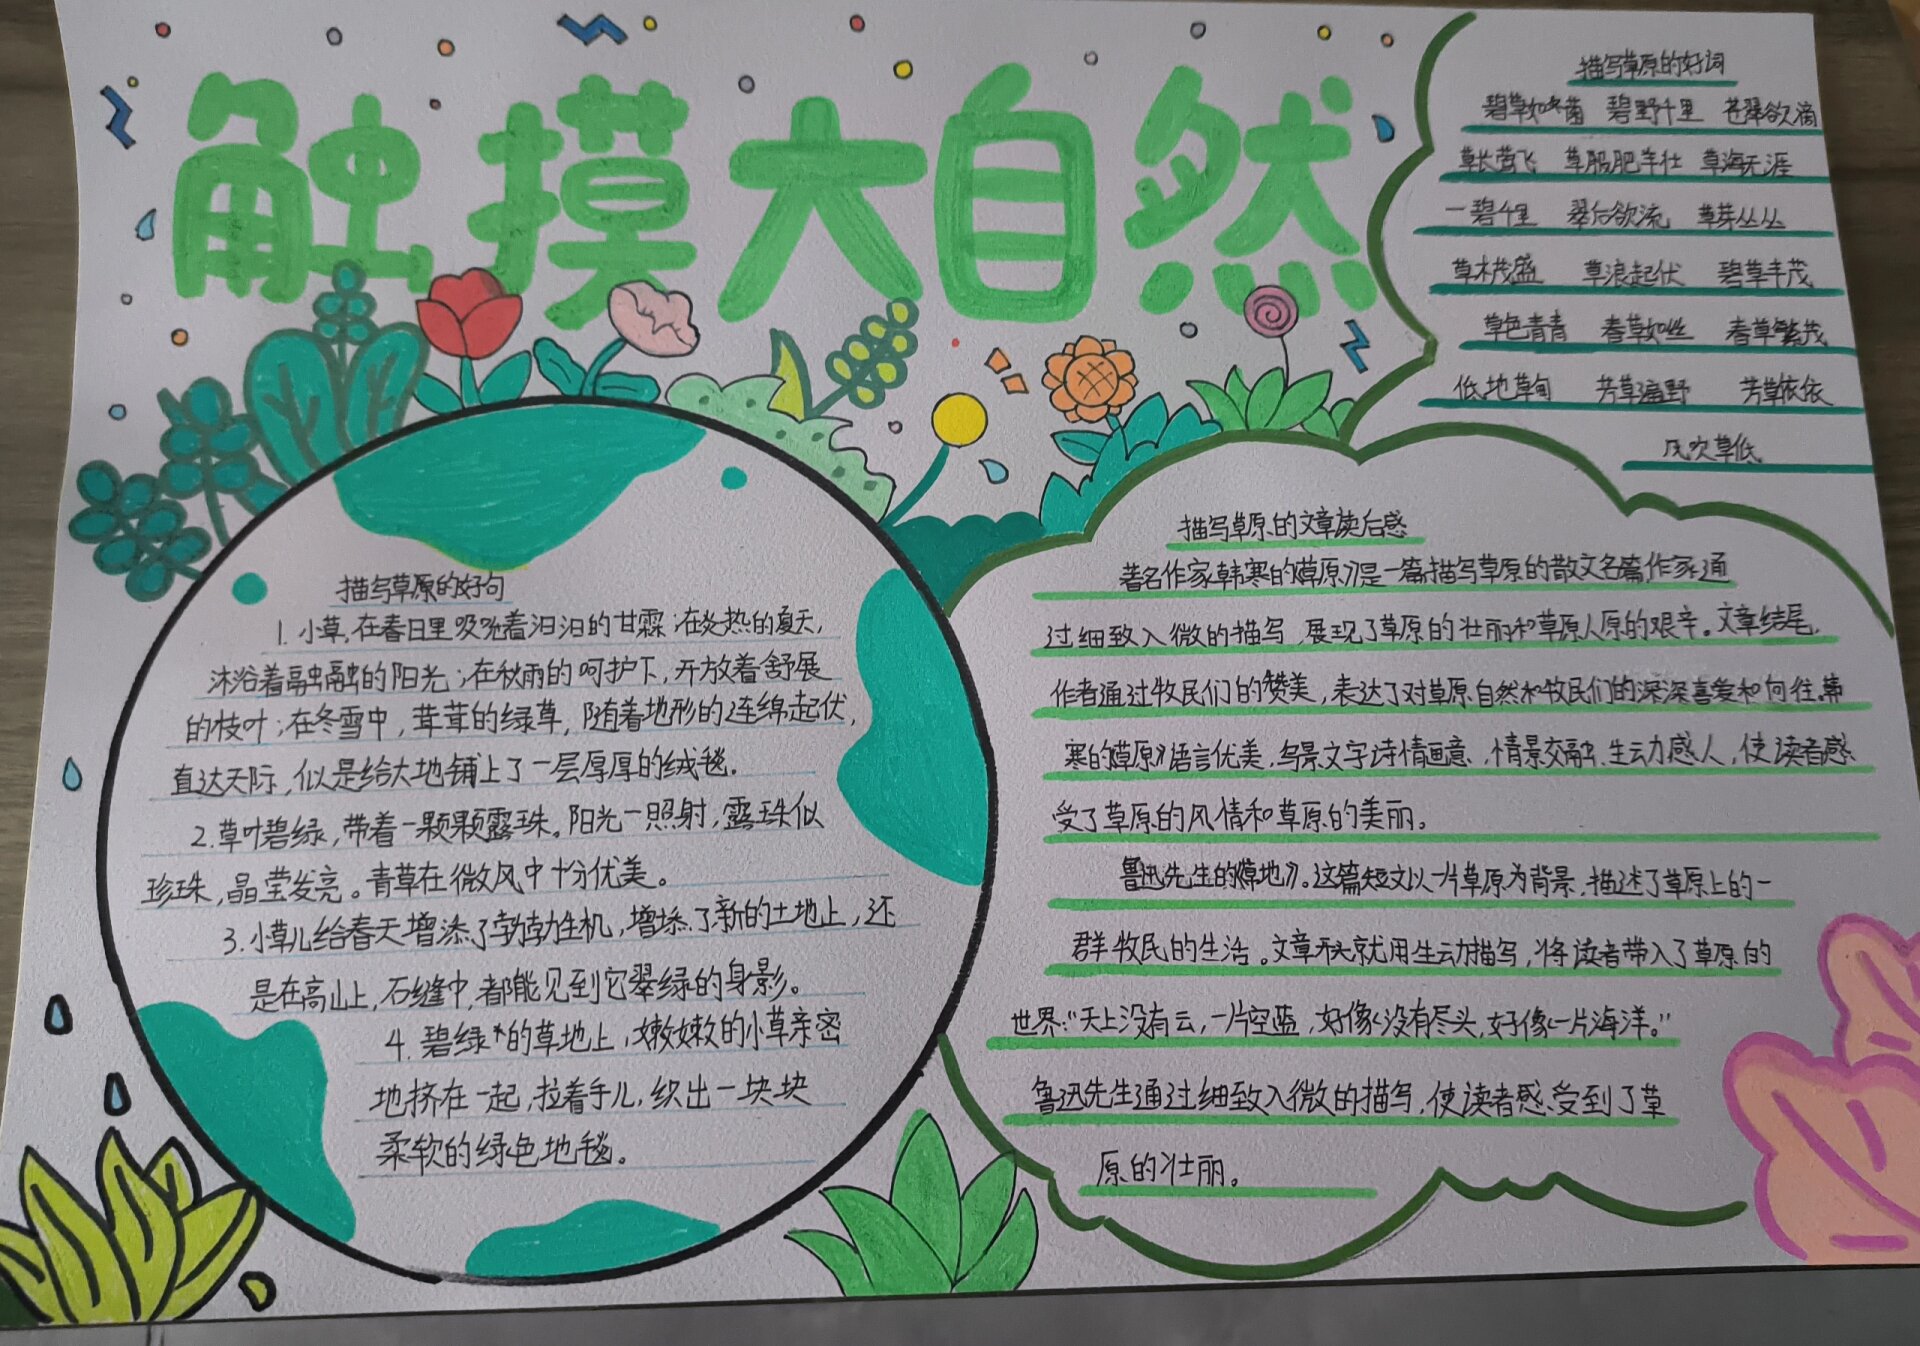 触摸大自然
描写草原的好词
碧草如茵 碧野千里 苍翠欲滴
草长莺飞 草肥羊壮 草海无涯
一碧千里 翠色欲流 草芽丛丛
草木茂盛 草浪起伏 碧草丰茂
草色青青 春草如丝 春草繁茂
低地草甸 芳草遍野 芳草依依
风吹草低
描写草原的好句
1. 小草,在春日里吸吮着汩汩的甘霖;在炎热的夏天,
沐浴着融融的阳光;在秋雨的呵护下,开放着舒展
的枝叶;在冬雪中,茸茸的绿草,随着地形的连绵起伏,
直达天际,似是给大地铺上了一层厚厚的绒毯.
2.草叶碧绿,带着一颗颗露珠。阳光一照射,露珠似
珍珠,晶莹发亮。青草在微风中十分优美。
3.小草儿给春天增添了勃勃生机,增添了新的土地上,还
是在高山上,石缝中,都能见到它翠绿的身影。
4. 碧绿的草地上,嫩嫩的小草亲密
地挤在一起,拉着手儿,织出一块块
柔软的绿色地毯。
描写草原的文章读后感
著名作家韩寒的《草原》是一篇描写草原的散文名篇作家通
过细致入微的描写,展现了草原的壮丽和草原人原的艰辛。文章结尾,
作者通过牧民们的赞美,表达了对草原自然和牧民们的深深喜爱和向往.韩
寒的《草原》语言优美,写景文字诗情画意、情景交融、生动感人,使读者感
受了草原的风情和草原的美丽。
鲁迅先生的《草地》。这篇短文以一片草原为背景,描述了草原上的一
群牧民的生活。文章开头就用生动描写,将读者带入了草原的
世界:“天上没有云,一片空蓝,好像没有尽头,好像一片海洋。”
鲁迅先生通过细致入微的描写,使读者感受到了草
原的壮丽。